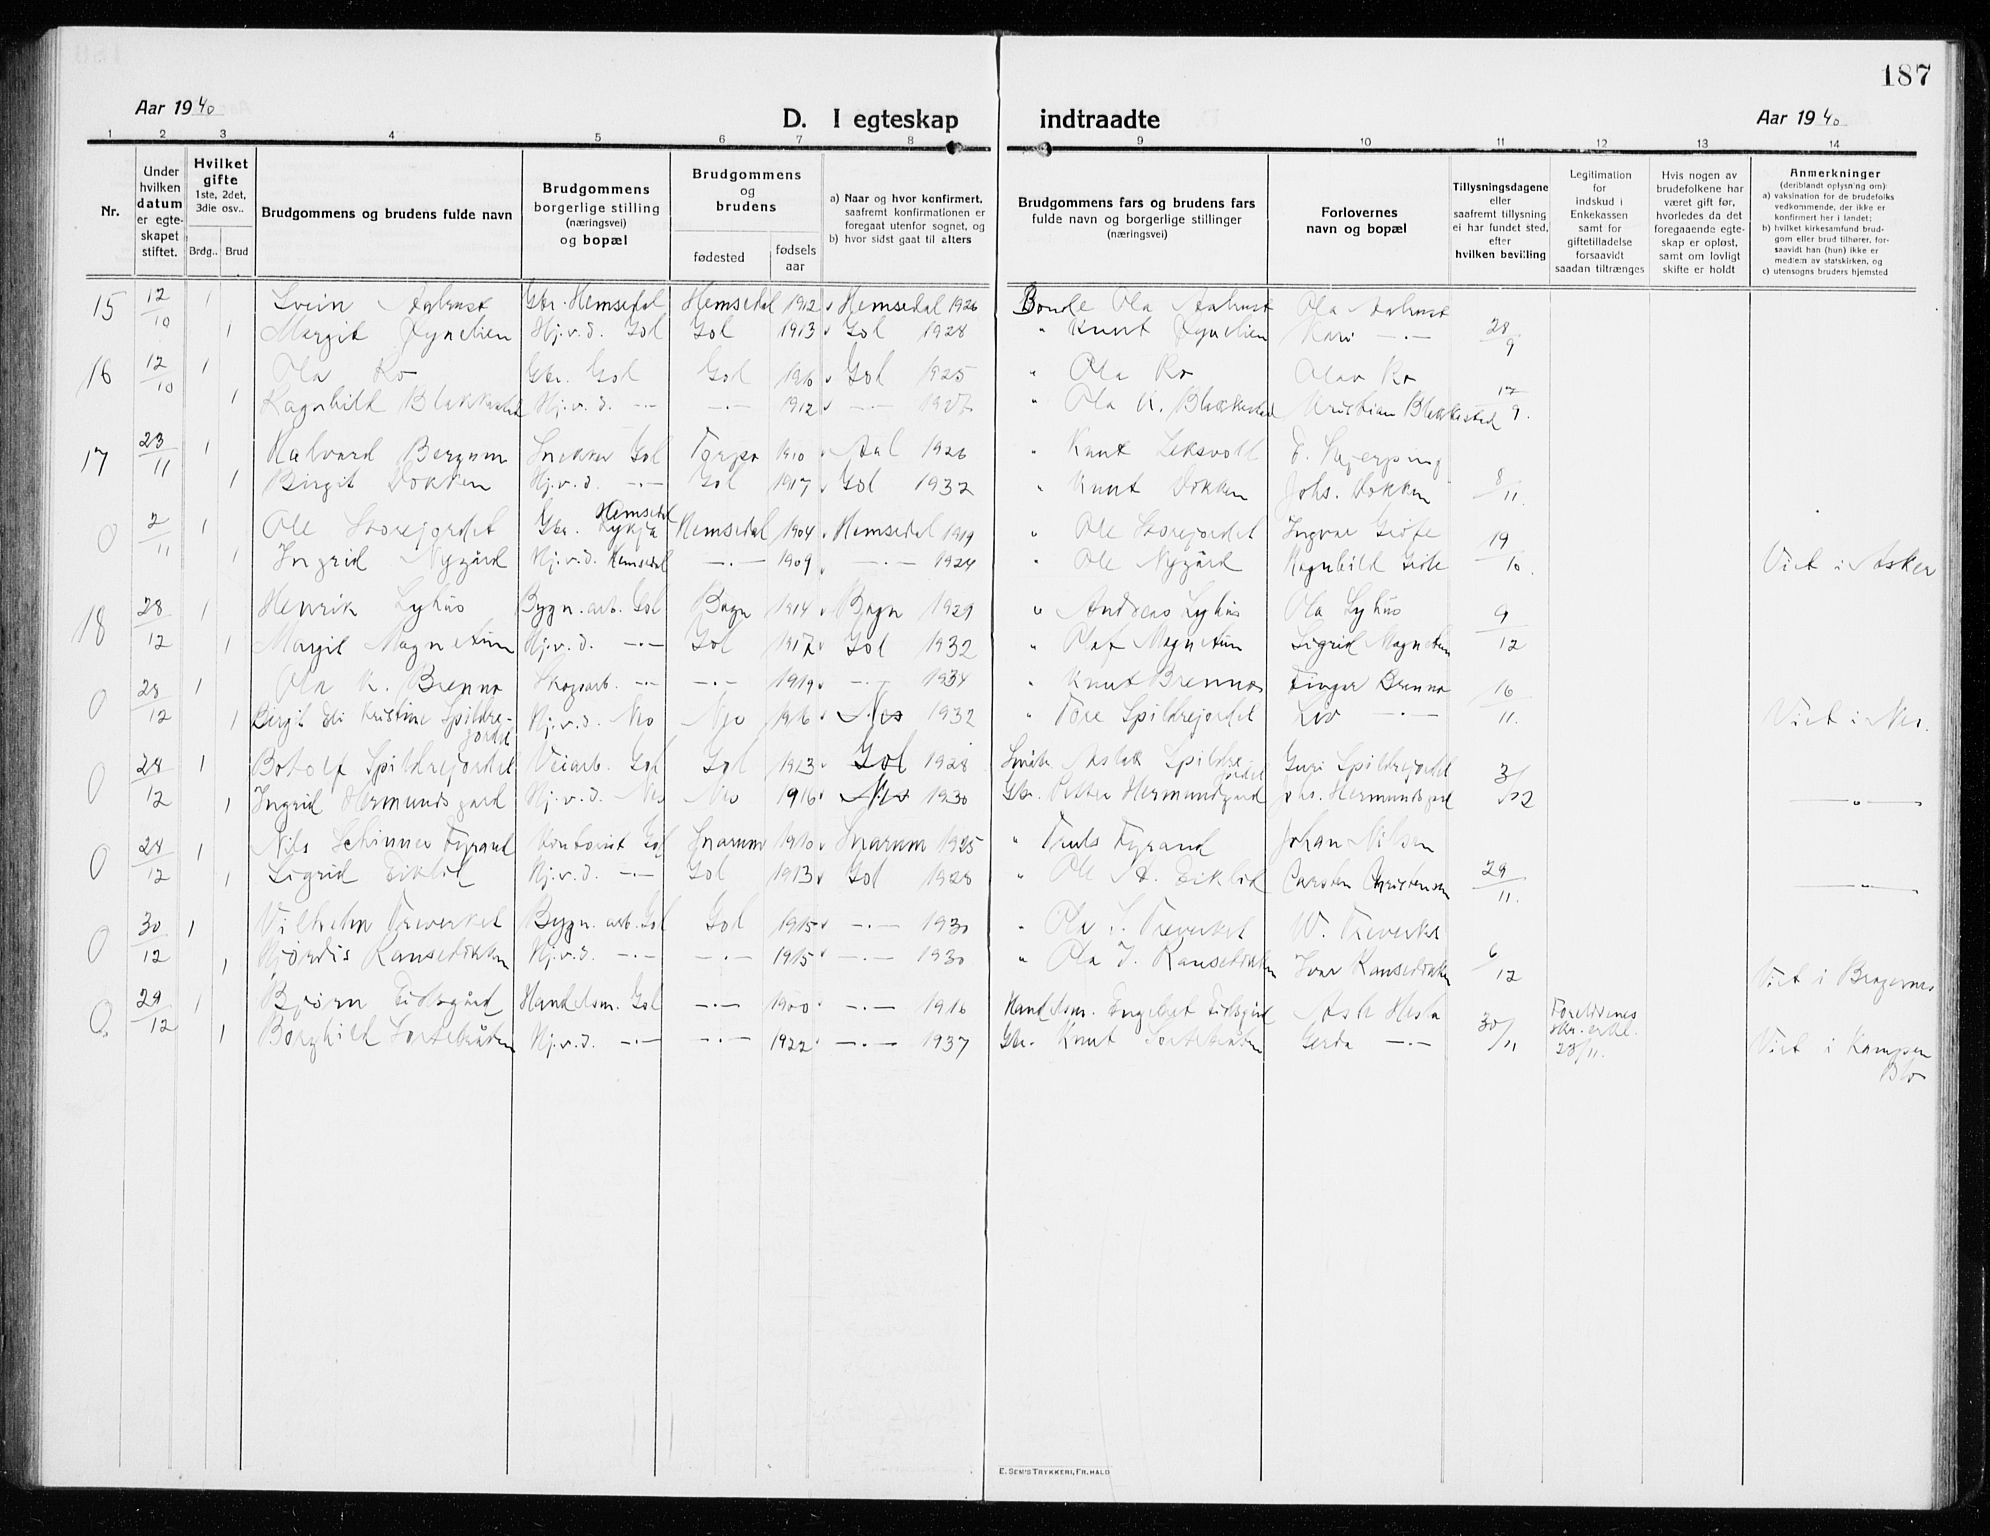 187
Aar 1940
D. I egteskap indtraadte
Aar 1940
1 2 3 4 5 6 7 8 9 10 11 12 13 14
Nr.
Under hvilken datum er egteskapet stiftet.
Hvilket gifte 1ste, 2det, 3die osv..
Brdg.. Brud
Brudgommens og brudens fulde navn
Brudgommens borgerlige stilling (næringsvei) og bopæl
Brudgommens og brudens
fødested
fødsels aar
a) Naar og hvor konfirmert, saafremt konfirmationen er foregaat utenfor sognet, og
b) hvor sidst gaat til alters
Brudgommens fars og brudens fars fulde navn og borgerlige stillinger (næringsvei)
Forlovernes navn og bopæl
Tillysningsdagene eller saafremt tillysning ei har fundet sted, efter hvilken bevilling
Legitimation for indskud i Enkekassen samt for giftetilladelse forsaavidt saadan tiltrænges
Hvis nogen av brudefolkene har været gift før, hvorledes da det foregaaende egteskap er opløst, samt om lovligt skifte er holdt
Anmerkninger (deriblandt oplysning om):
a) vaksination for de brudefolks vedkommende, der ikke er konfirmert her i landet;
b) hvilket kirkesamfund brudgom eller brud tilhører, forsaavidt han (hun) ikke er medlem av statskirken, og
c) utensogns bruders hjemsted
15 12/10 1 Svein Gbr. Hemsedal Hemsedal 1912 Hemsedal 1926 Bonde Ola Ola
1 Margit Hj.v.d. Gol Gol 1913 Gol 1928 " Knut Kari —.— 28/9
16 12/10 1 Ola Ro Gbr. Gol Gol Gol 1925 " Ola Ro Olav Ro
1 Ragnhild Blakkestad Hj.v.d. —.— —.— 1912 —.— 1927 " Ola K. Blakkestad Kristian Blakkestad 17/9.
17 23/11 1 Halvard Bergum Snekker Gol Torpo 1910 Aal 1926 " Knut Leksvoll
1 Birgit Dokken Hj.v.d. —.— Gol 1917 Gol 1932 " Knut Dokken Johs. Dokken 8/11.
0 2/11 1 Ole Storejordet Gbr. Hemsedal Hemsedal 1904 Hemsedal 1919 " Ole Storejordet Ingvar
1 Ingrid Nygård Hj.v.d. Hemsedal —.— 1909 —.— 1924 " Ole Nygård Ragnhild 19/10. Viet i Asker
18 28/12 1 Henrik Lyhus Bygn.arb. Gol Bagn 1914 Bagn 1929 " Andreas Lyhus Ola Lyhus
1 Margit Magnetun Hj.v.d. —.— Gol 1917 Gol 1932 " Olaf Magnetun Sigrid Magnetun 9/12
0 28/12 1 Ola K. Brenno Skogsarb. —.— —.— 1919 —.— 1934 " Knut Brenno Brenno
1 Birgit Eli Kristine Spildrejordet Hj.v.d. Nes Nes 1916 Nes 1932 " Tore Spildrejordet Liv —.— 16/11. Viet i Nes.
0 24/12 1 Botolf Spildrejordet Veiarb. Gol Gol 1913 Gol 1928 Aslak Spildrejordet Guri Spildrejordet
1 Ingrid Hermundsgard Hj.v.d. Nes Nes 1916 Nes 1930 Gbr. Petter Hermundsgard Johs. Hermundsgard 3/12 — " —
0 24/12 1 Nils Schinner Fyrand Kontorist Gol Snarum 1910 Snarum 1925 " Truls Fyrand Johan Nilsen
1 Sigrid Eiklid Hj.v.d. —.— Gol 1913 Gol 1928 " Ole Eiklid Carsten Christensen 29/11. — " —
0 30/12 1 Vilhelm Treverket Bygn.arb. Gol Gol 1915 —.— 1930 " Ola S. Treverket W. Treverket
1 Hjørdis Ransedokken Hj.v.d. —.— —.— 1915 —.— 1930 " Ola I. Ransedokken Ivar Ransedokken 6/12 Viet i Bragernes
0 29/12 1 Bjørn Eidsgård Handelsm. Gol —.— 1900 —.— 1916 Handelsm. Engebret Eidsgård Hesla
1 Borghild Sortebråten Hj.v.d. —.— —.— 1922 —.— 1937 Gbr. Knut Sortebråten Gerda —.— 30/11 Foreldrenes skr. erkl. 28/11. Viet i Kampen
E. SEM'S TRYKKERI, FR.HALD